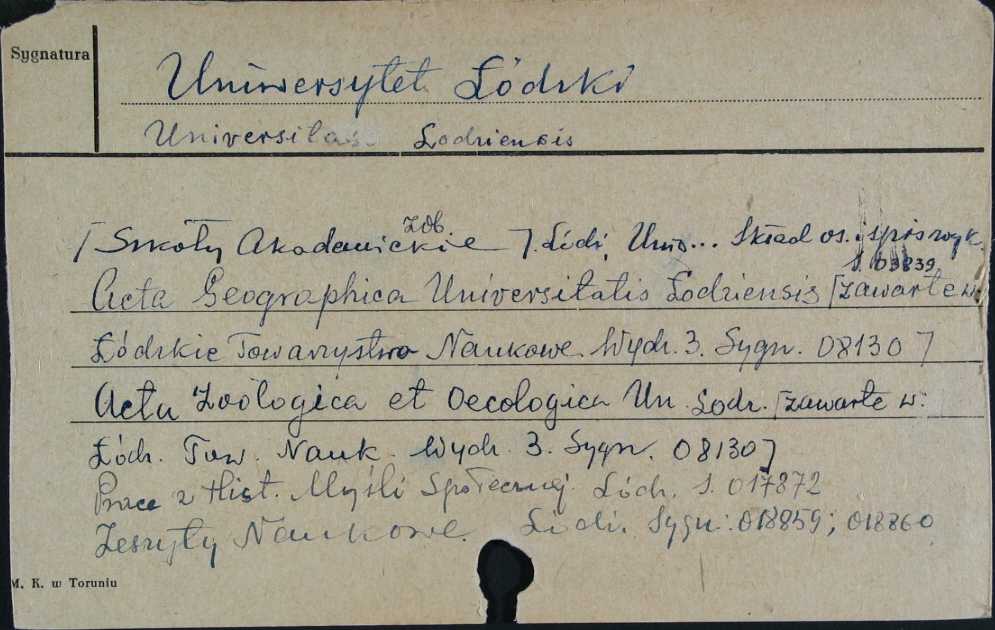 Sygnatura
Uniwersytet Łódzki
Universitas Lodziensis
zob.
[Szkoły Akademickie]. Łódź, Uniw... Skład os. i spis wyk.
S. 03839
Acta Geographica Universitatis Lodziensis [zawarte w:
Łódzkie Towarzystwo Naukowe. Wydz. 3. Sygn. 08130]
Acta Zoologica et Oecologica Un. Lodz. [zawarte w:
Łódz. Tow. Nauk. Wydz. 3. Sygn. 08130]
Prace z Hist. Myśli Społecznej. Łódź. S. 017872
Zeszyty Naukowe. Łódź. Sygn: 018859; 018860
M. K. w Toruniu